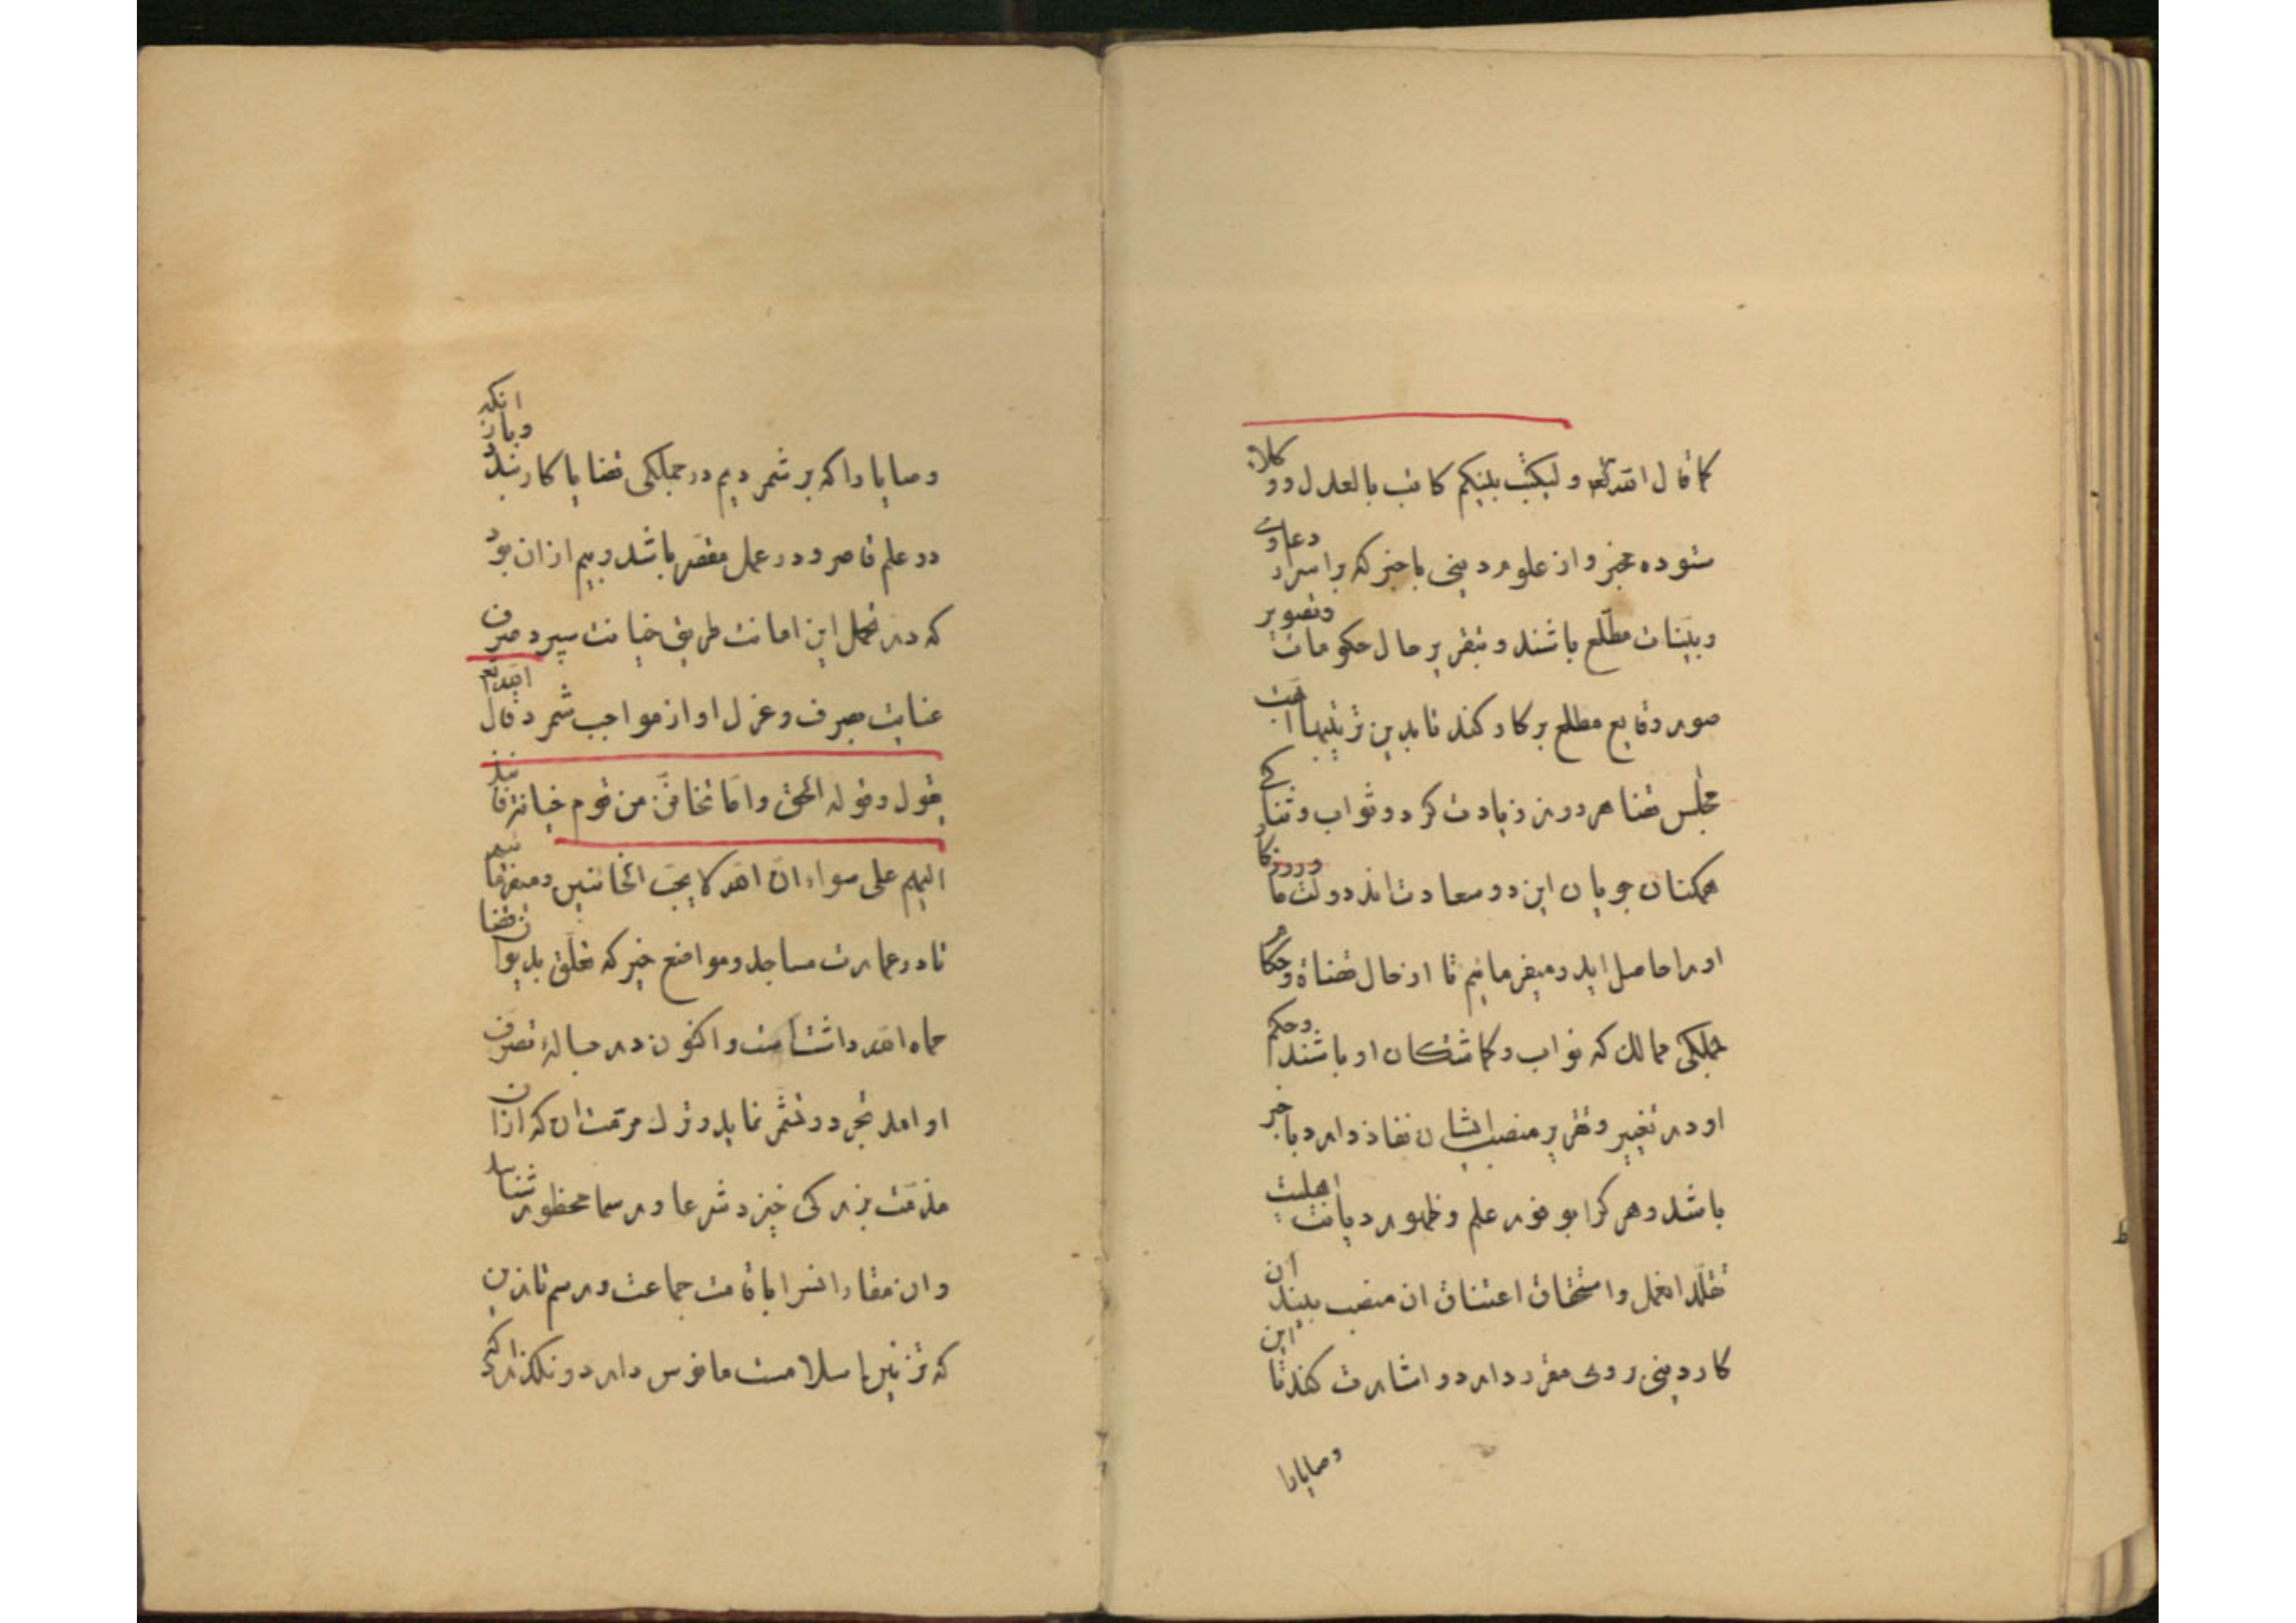 كما قال الله تعالی ولیکتب بینکم کاتب بالعدل ووکلاء
ستوده مخبر واز علوم دینی باخبر که بر اسرار دعاوی
وبینات مطلع باشند و بتقریر حال حکومات وتصویر
صور وقایع مطلع برکار کند تا بدین ترتیبها ابهت
مجلس قضا هر روز زیادت کردد وثواب وثنا که
همکنان جویان این دو سعادت اند دولت ما وروزکار
اورا حاصل اید ومیفرمائیم تا از حال قضاة وحکام
جملکی ممالک که نواب وکماشتکان او باشند وحکم
او در تغییر وتقریر منصب ایشان نفاذ دارد باخبر
باشد وهر کرا بوفور علم وظهور دیانت اهلیت
تقلد انعمل واستحقاق اعتناق ان منصب بیند ان
کار دینی روی مقرر دارد و اشارت کند تا این
وصایارا
وصایا را که برشمردیم در جملکی قضایا کار بندد وباز انکه
در علم قاصر ودر عمل مقصر باشد وبیم از ان بود
که در تحمل این امانت طریق خیانت سپرد صرف
عنایت بصرف وعزل او از مواجب شمرد قال الله تعالی
یقول وقوله الحق واما تخافن من قوم خیانة فانبذ
الیهم علی سواء ان الله لا یحب الخائنین ومیفرمائیم
تا در عمارت مساجد ومواضع خیر که تعلق بدیوان قضا
حماه الله داشتست واکنون در حباله تصرف
او امد تجرد وتشمر نماید وترک مرمت ان که ازان
مذمت بزرکی خیزد شرعا ورسما محظور شناسد
وان مقار انس را باقامت جماعت ورسم تازین
که تزیین اسلامست مانوس دارد ونکذارد که